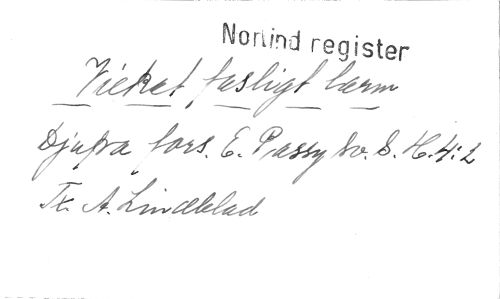 Norlind register
Vicket fasligt larm
Djupa fors. E. Passy Sv. S. H. 4:2
Tx. A. Lindblad